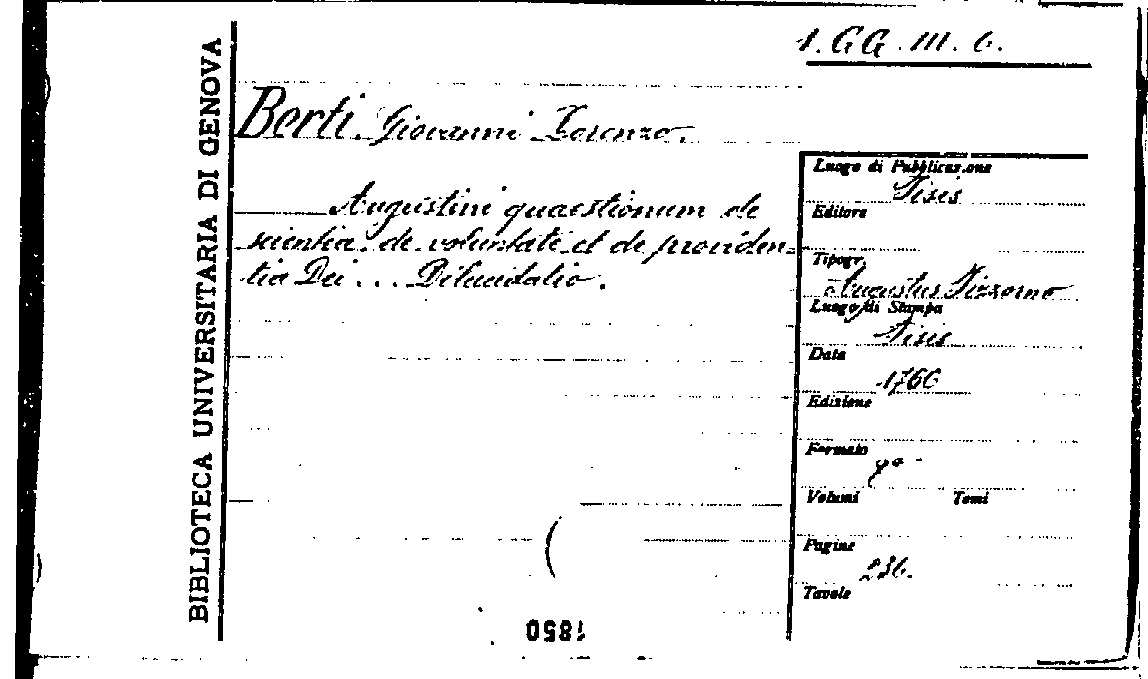 1.GG.III.6.
BIBLIOTECA UNIVERSITARIA DI GENOVA
Berti Giovanni Lorenzo.
Augustini quaestionum de
scientia, de voluntate et de providen=
tia Dei ... Dilucidatio.
Luogo di Pubblicazione
Pisis
Editore
Tipogr.
Augustus Pizzorno
Luogo di Stampa
Pisis
Data
1766
Edizione
Formato
Volumi Tomi
Pagine
236.
Tavole
1850